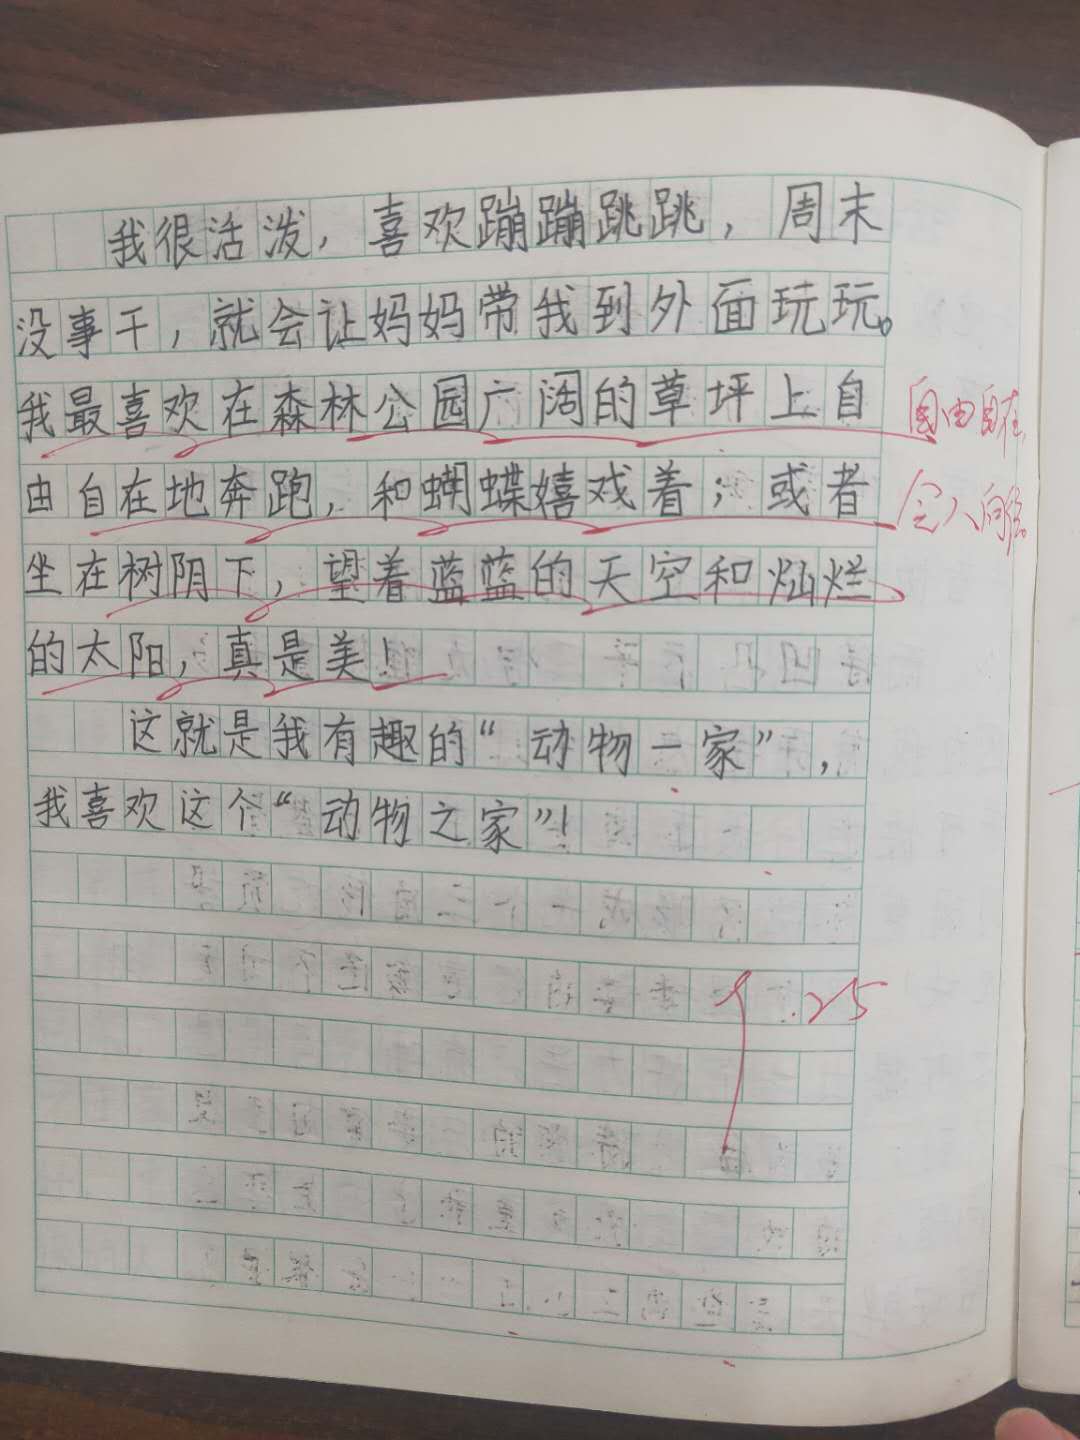 我很活泼，喜欢蹦蹦跳跳，周末
没事干，就会让妈妈带我到外面玩玩。
我最喜欢在森林公园广阔的草坪上自
由自在地奔跑，和蝴蝶嬉戏着；或者
坐在树阴下，望着蓝蓝的天空和灿烂
的太阳，真是美！
这就是我有趣的“动物一家”，
我喜欢这个“动物之家”！
自由自在，
令人向往。
25